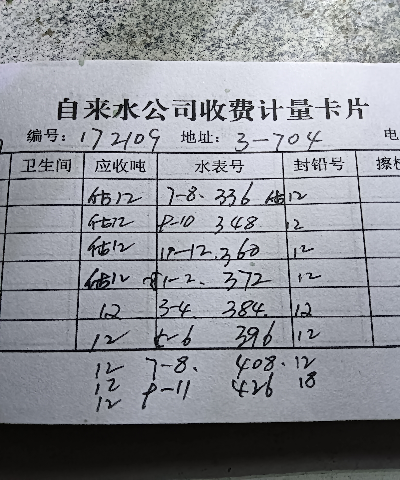 自来水公司收费计量卡片
编号: 172109 地址: 3-704 电
卫生间 应收吨 水表号 封铅号 擦
估12 7-8. 336 估12
估12 9-10 348 12
估12 11-12. 360 12
估12 1-2. 372 12
12 3-4. 384. 12
12 5-6 396 12
12 7-8. 408. 12
12 9-11 426 18
12